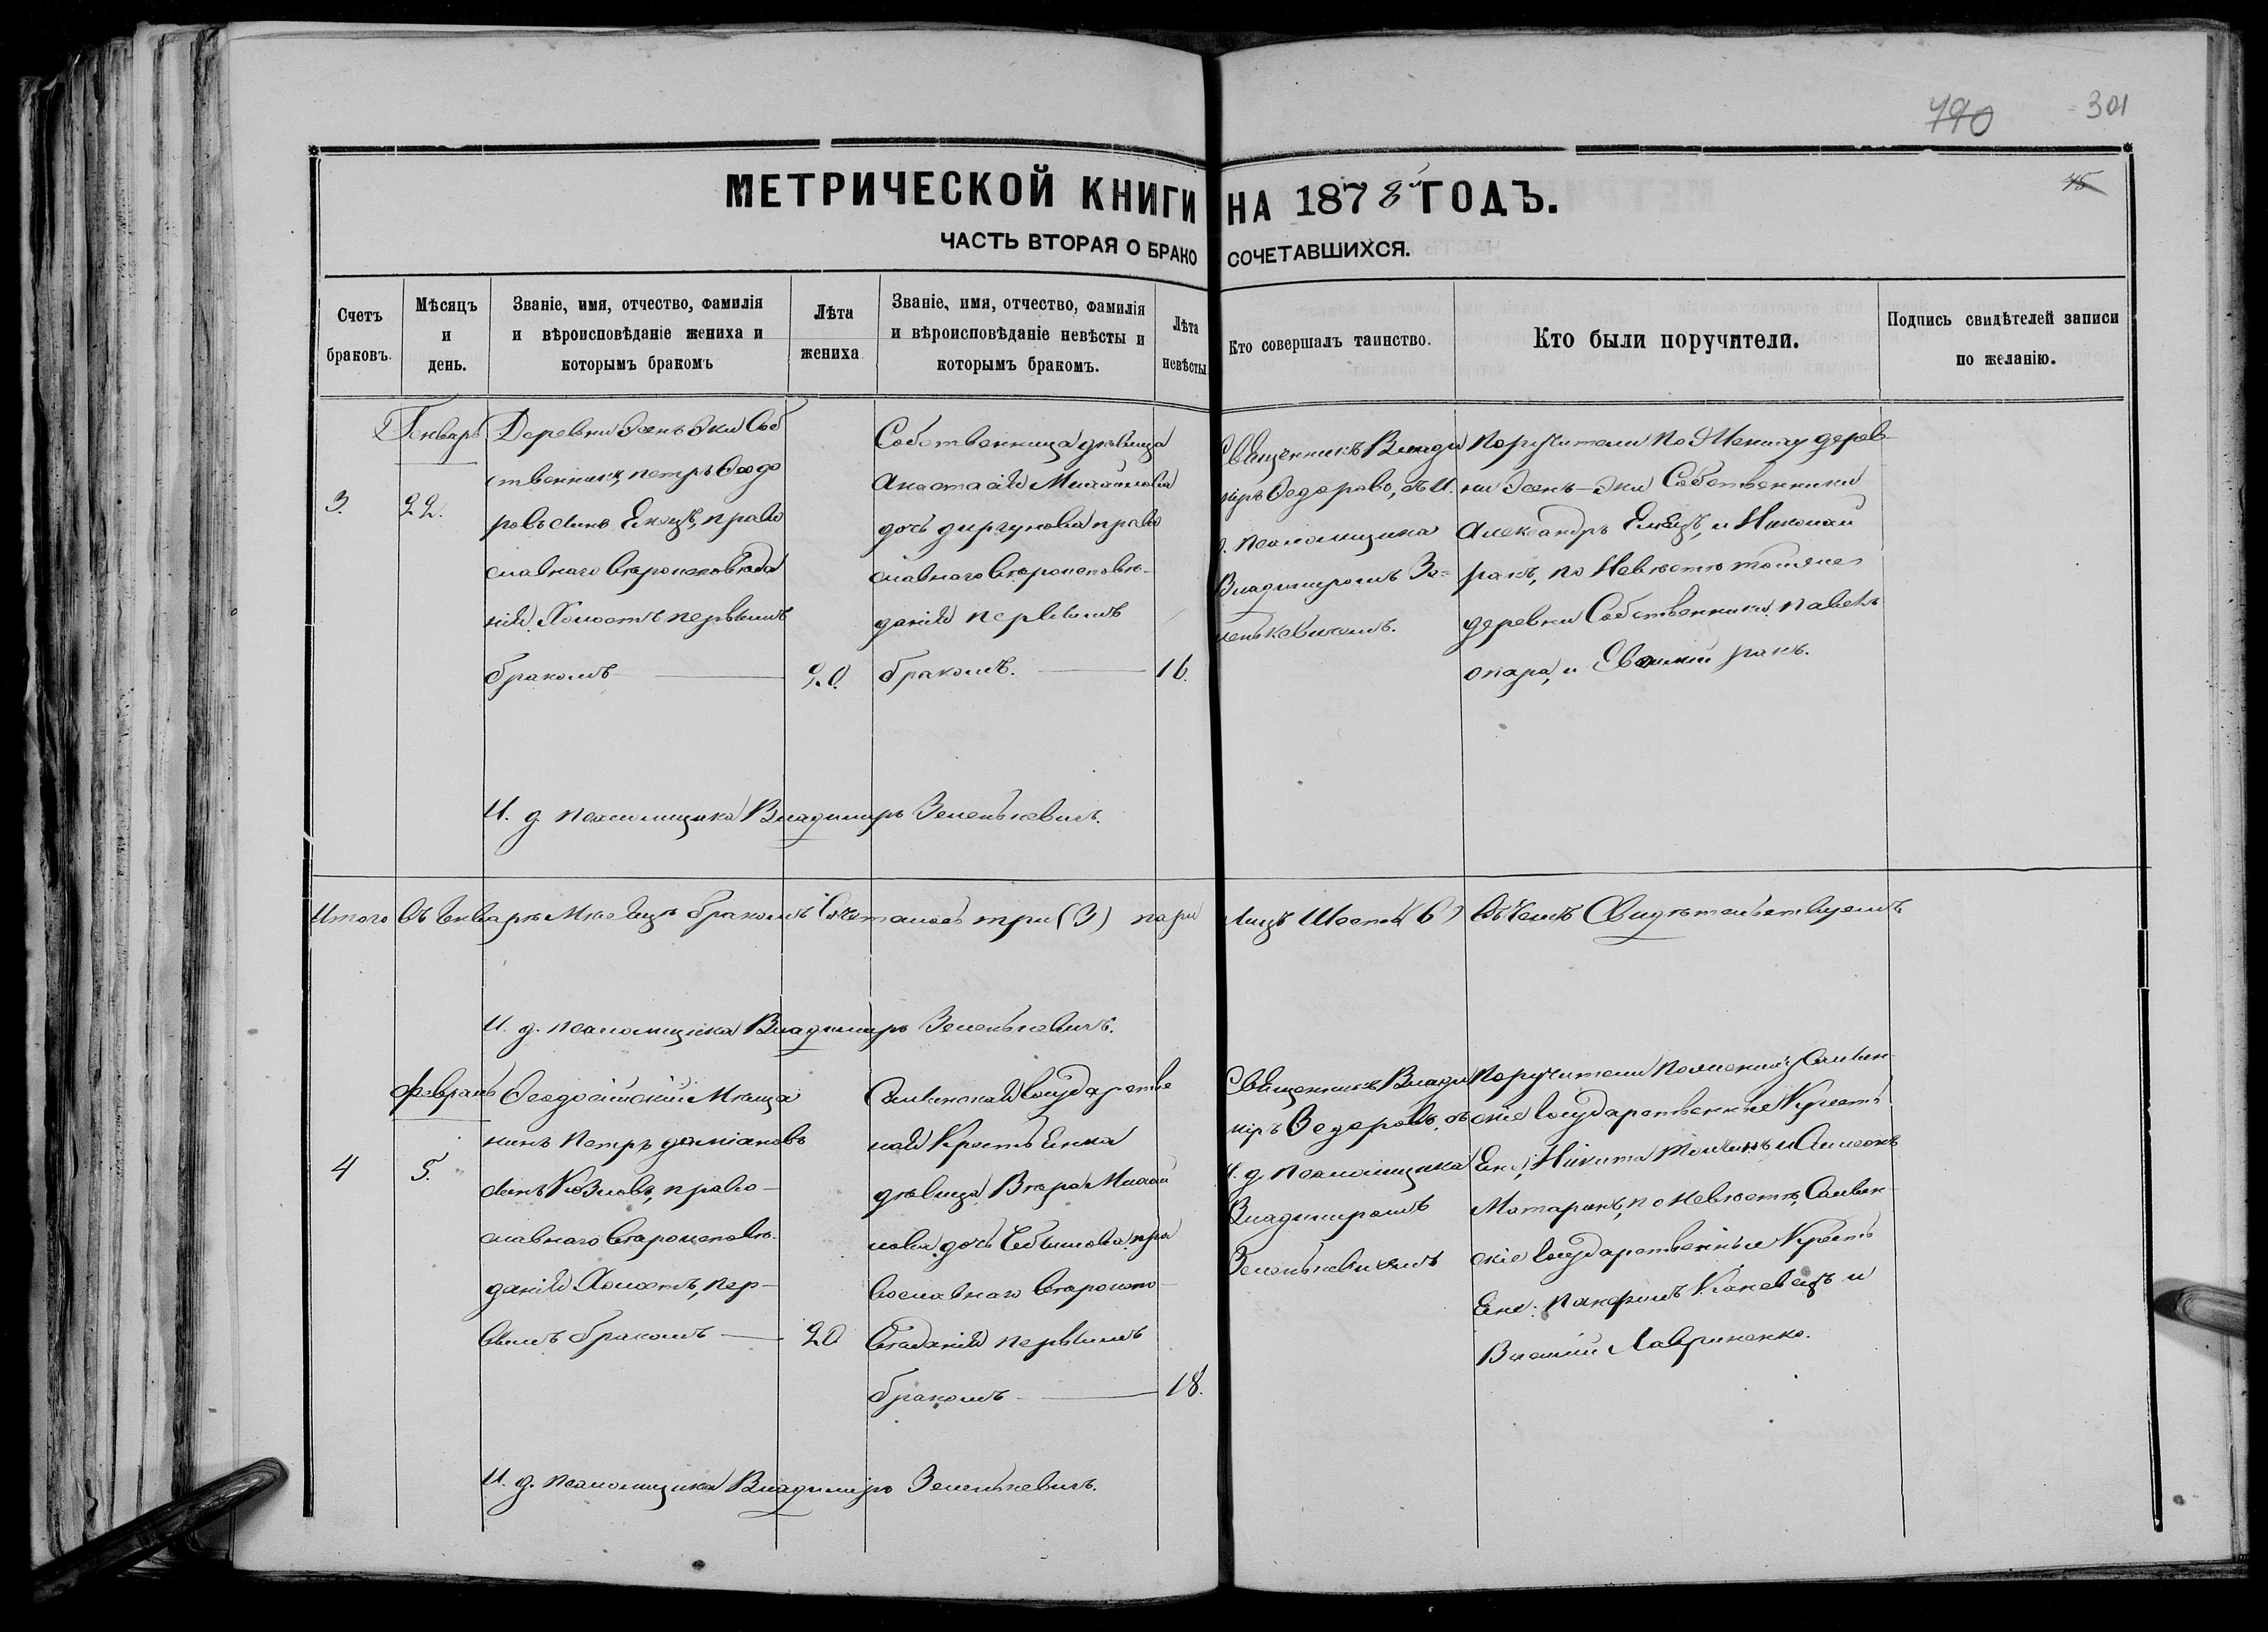 790
301
45
МЕТРИЧЕСКОЙ КНИГИ НА 1878й ГОДЪ.
ЧАСТЬ ВТОРАЯ О БРАКОСОЧЕТАВШИХСЯ.
Счетъ браковъ.
Мѣсяцъ и день.
Званіе, имя, отчество, фамилія и вѣроисповѣданіе жениха и которымъ бракомъ
Лѣта жениха
Званіе, имя, отчество, фамилія и вѣроисповѣданіе невѣсты и которымъ бракомъ.
Лѣта невѣсты
Кто совершалъ таинство.
Кто были поручители.
Подпись свидѣтелей записи по желанію.
3.
Генварь
22.
Деревни Джен Эки Соб
ственникъ, петръ Ѳеодо
ровъ сынъ Емецъ, право
славнаго вѣроисповѣда
нія Холостъ первымъ
бракомъ
20.
Собственница дѣвица
Анастасія Михайлова
дочь диргунова право
славнаго вѣроисповѣ-
данія первымъ
бракомъ.
16.
Священникъ Влади
міръ Ѳедоровъ, съ И.
д. псаломщика
Владимиромъ Зе-
ленькевичемъ.
Поручители По Жениху дерев-
ни Джен-Эки Собственники
Александръ Емецъ, и Николай
ракъ, по Невѣстѣ тойже
деревни Собственники павелъ
опара, и ракъ.
И. д. псаломщика Владимиръ Зеленькевичъ.
Итого въ Январѣ Мѣсяцѣ бракомъ Сочеталось три (3) пари Лицъ Шесть (6) въ чемъ Свидѣтельствуемъ
И. д. псаломщика Владимиръ Зеленькевичъ.
4
февраль
5.
Ѳеодосійскій Мѣща
нинъ Петръ даміановъ
сынъ Козловъ, право-
славнаго вѣроисповѣ-
данія Холостъ, пер-
вымъ бракомъ
20
Салынская государстве
ная Крестьянка
дѣвица Вѣра Михай
лова дочь пра
вославнаго вѣроиспо
вѣданія первымъ
бракомъ
18.
Священникъ Влади
міръ Ѳедоровъ, съ
И. д. псаломщика
Владимиромъ
Зеленькевичемъ
Поручители по жениху Салын-
скіе государственные Кресть
яне, Никита и Симеонъ
Матаринъ, по Невѣстѣ, Салын-
скіе государственные Кресть
яне: Панфилъ Каневецъ и
Василій Лавриненко.
И. д. псаломщика Владиміръ Зеленькевичъ.